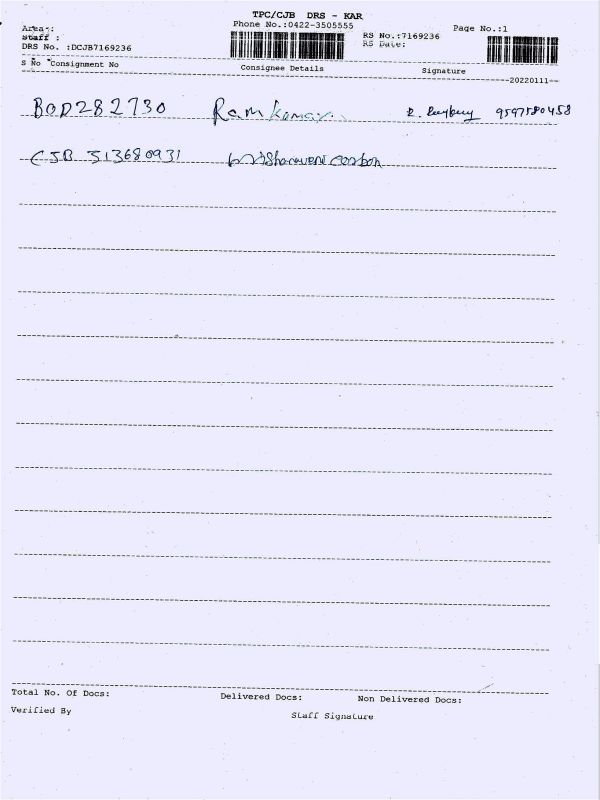 TPC/CJB DRS - KAR
Area :
Phone No.:0422-3505555
Page No.:1
Staff :
RS No.:7169236
DRS No. :DCJB7169236
RS Date:
S No Consignment No Consignee Details Signature
20220111
BOD282730 Ramkumar R. 9597580458
CJB 513680931
Total No. Of Docs: Delivered Docs: Non Delivered Docs:
Verified By Staff Signature